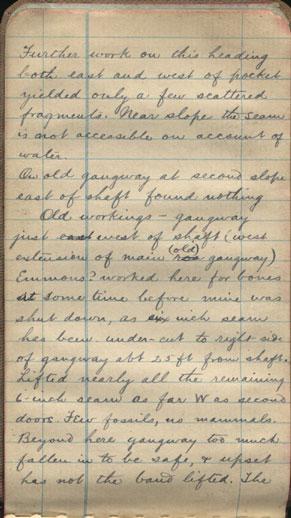 Further work on this heading
both east and west of pocket
yielded only a few scattered
fragments. Near slope the seam
is not accessible on account of
water.
On old gangway at second slope
east of shaft found nothing
Old workings – gangway
just east west of shaft (west
extension of main (old) gangway)
Emmons? worked here for bones
at some time before mine was
shut down, as six inch seam
has been under-cut to right side
of gangway abt 25 ft from shaft.
Lifted nearly all the remaining
6-inch seam as far W as second
doors. Few fossils, no mammals.
Beyond here gangway too much
fallen in to be safe, & upset
has not the band lifted. The